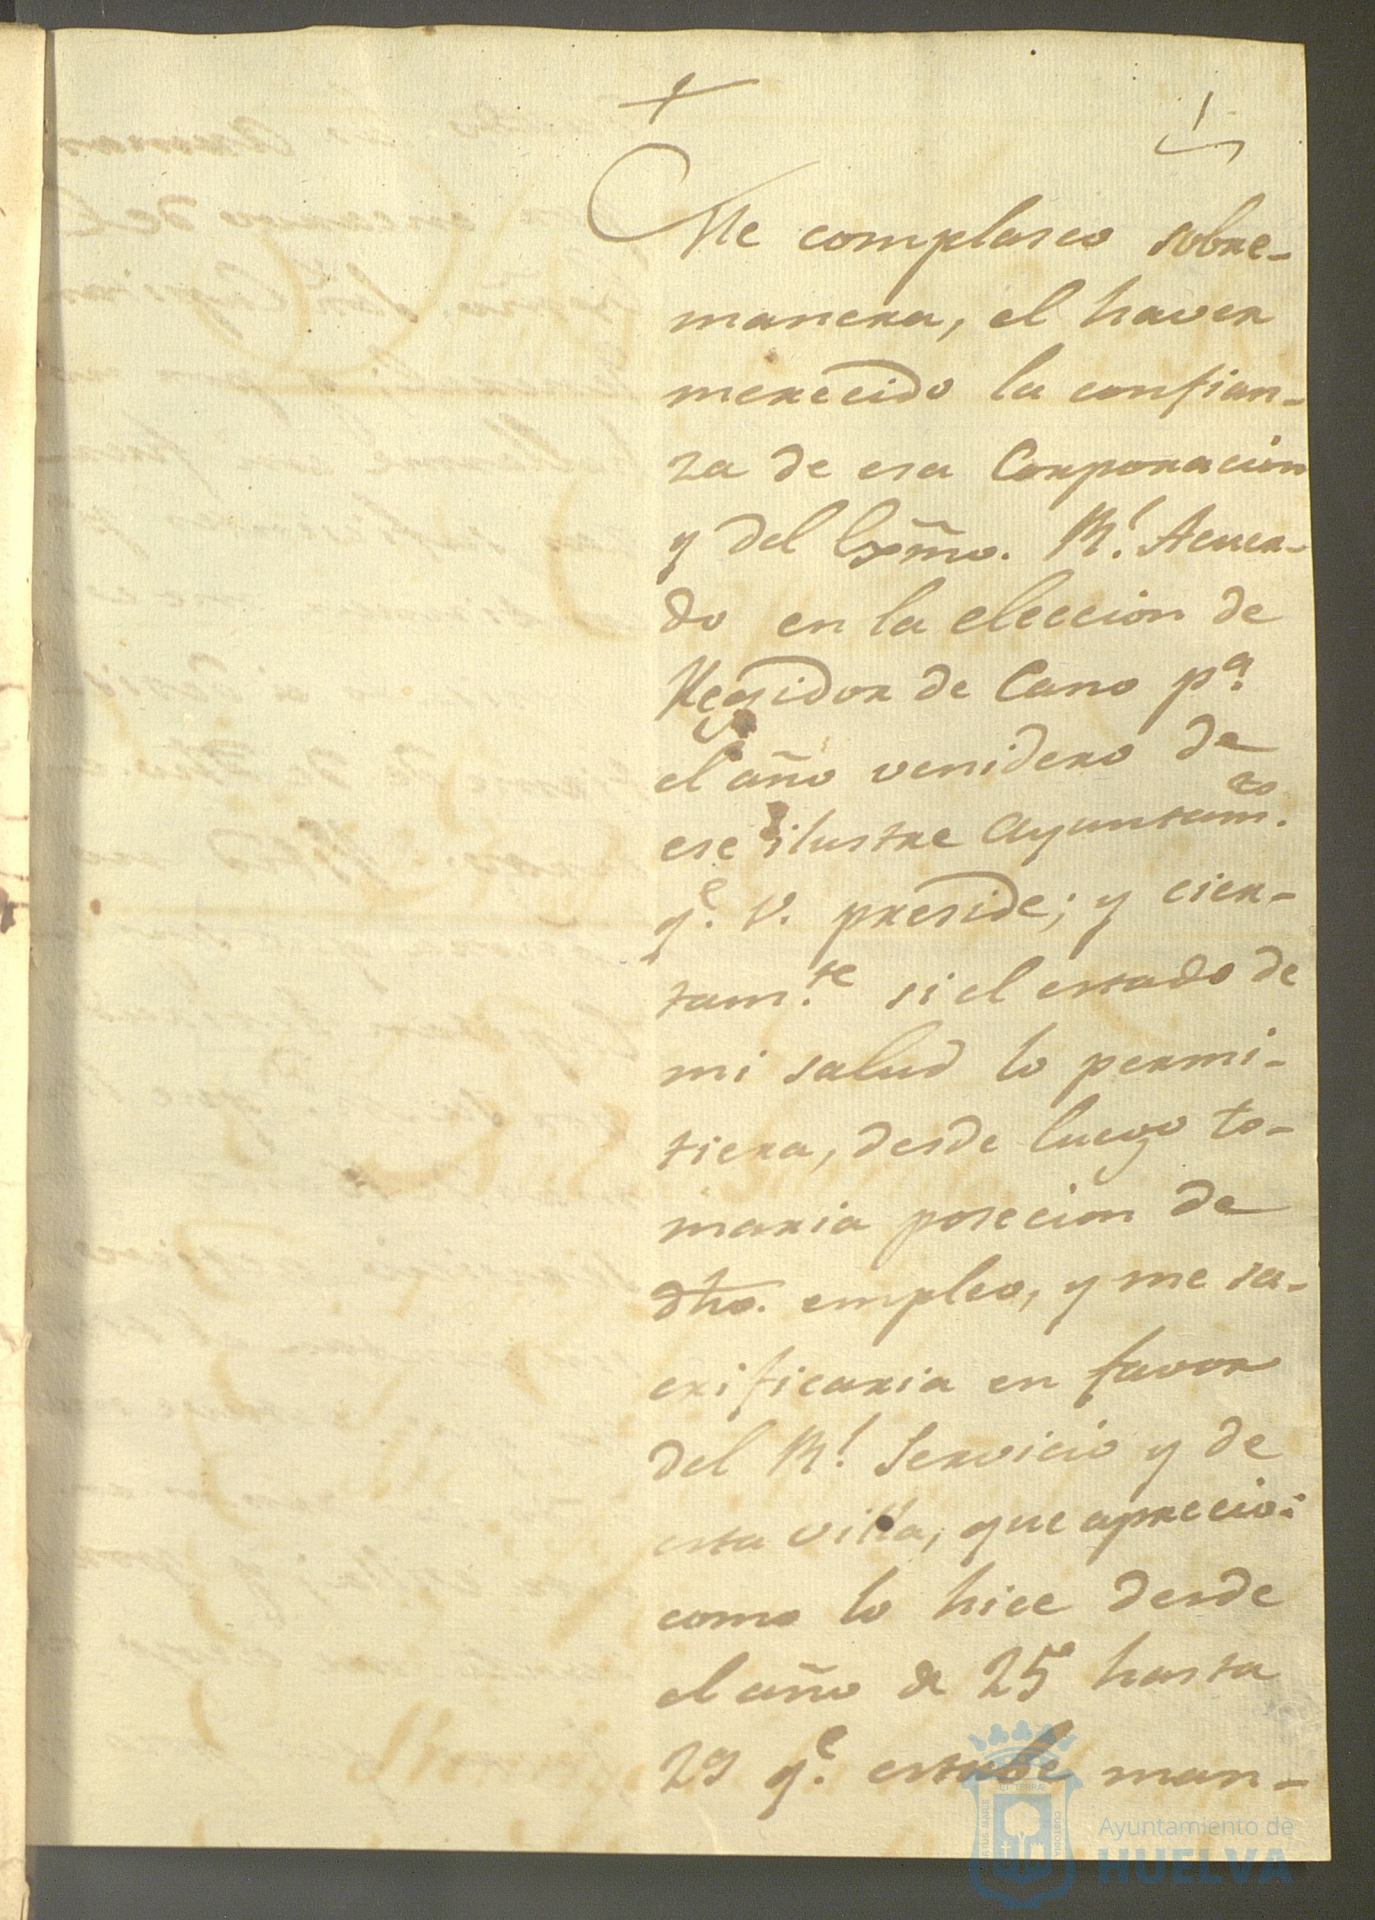 Me complasco sobre-
manera, el haver
merecido la confian-
za de esa Corporacion
y del Exmo. Rl. Acuer-
do en la eleccion de
Regidor de Cano pa.
el año venidero de
ese ilustre Ayuntamto.
qe. V. preside; y cier-
tamte. si el estado de
mi salud lo permi-
tiera, desde luego to-
maria posecion de
dho. empleo, y me sa-
crificaria en favor
del Rl. Servicio y de
esta villa, que aprecio:
como lo hice desde
el año de 25 hasta
29 qe. estube man-
Ayuntamiento de
HUELVA